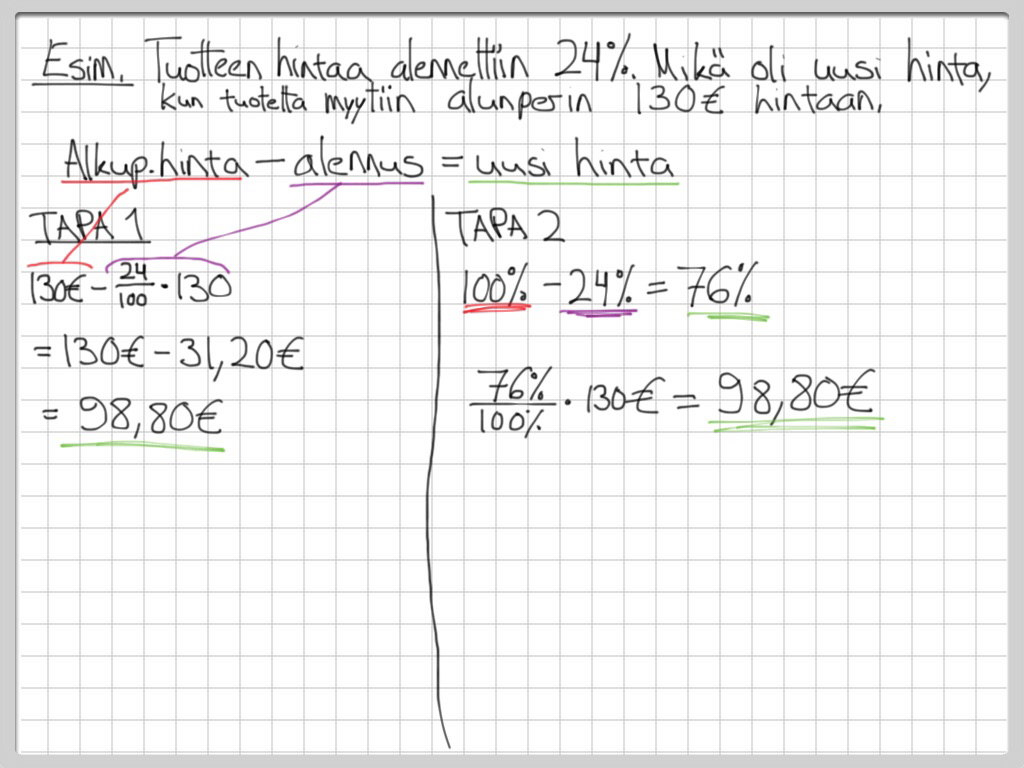 Esim. Tuotteen hintaa alennettiin 24%. Mikä oli uusi hinta,
kun tuotetta myytiin alunperin 130€ hintaan.
Alkup.hinta – alennus = uusi hinta
TAPA 1
130€ – 24/100 · 130
= 130€ – 31,20€
= 98,80€
TAPA 2
100% – 24% = 76%
76%/100% · 130€ = 98,80€